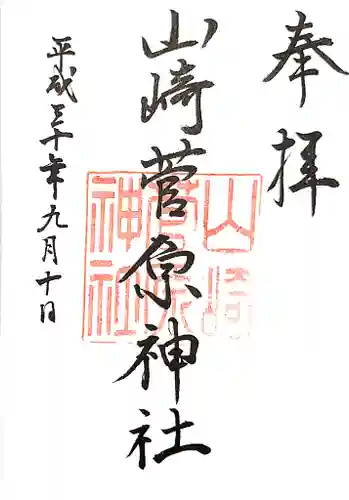 奉拝
山崎菅原神社
山崎菅原神社
平成三十年九月十日